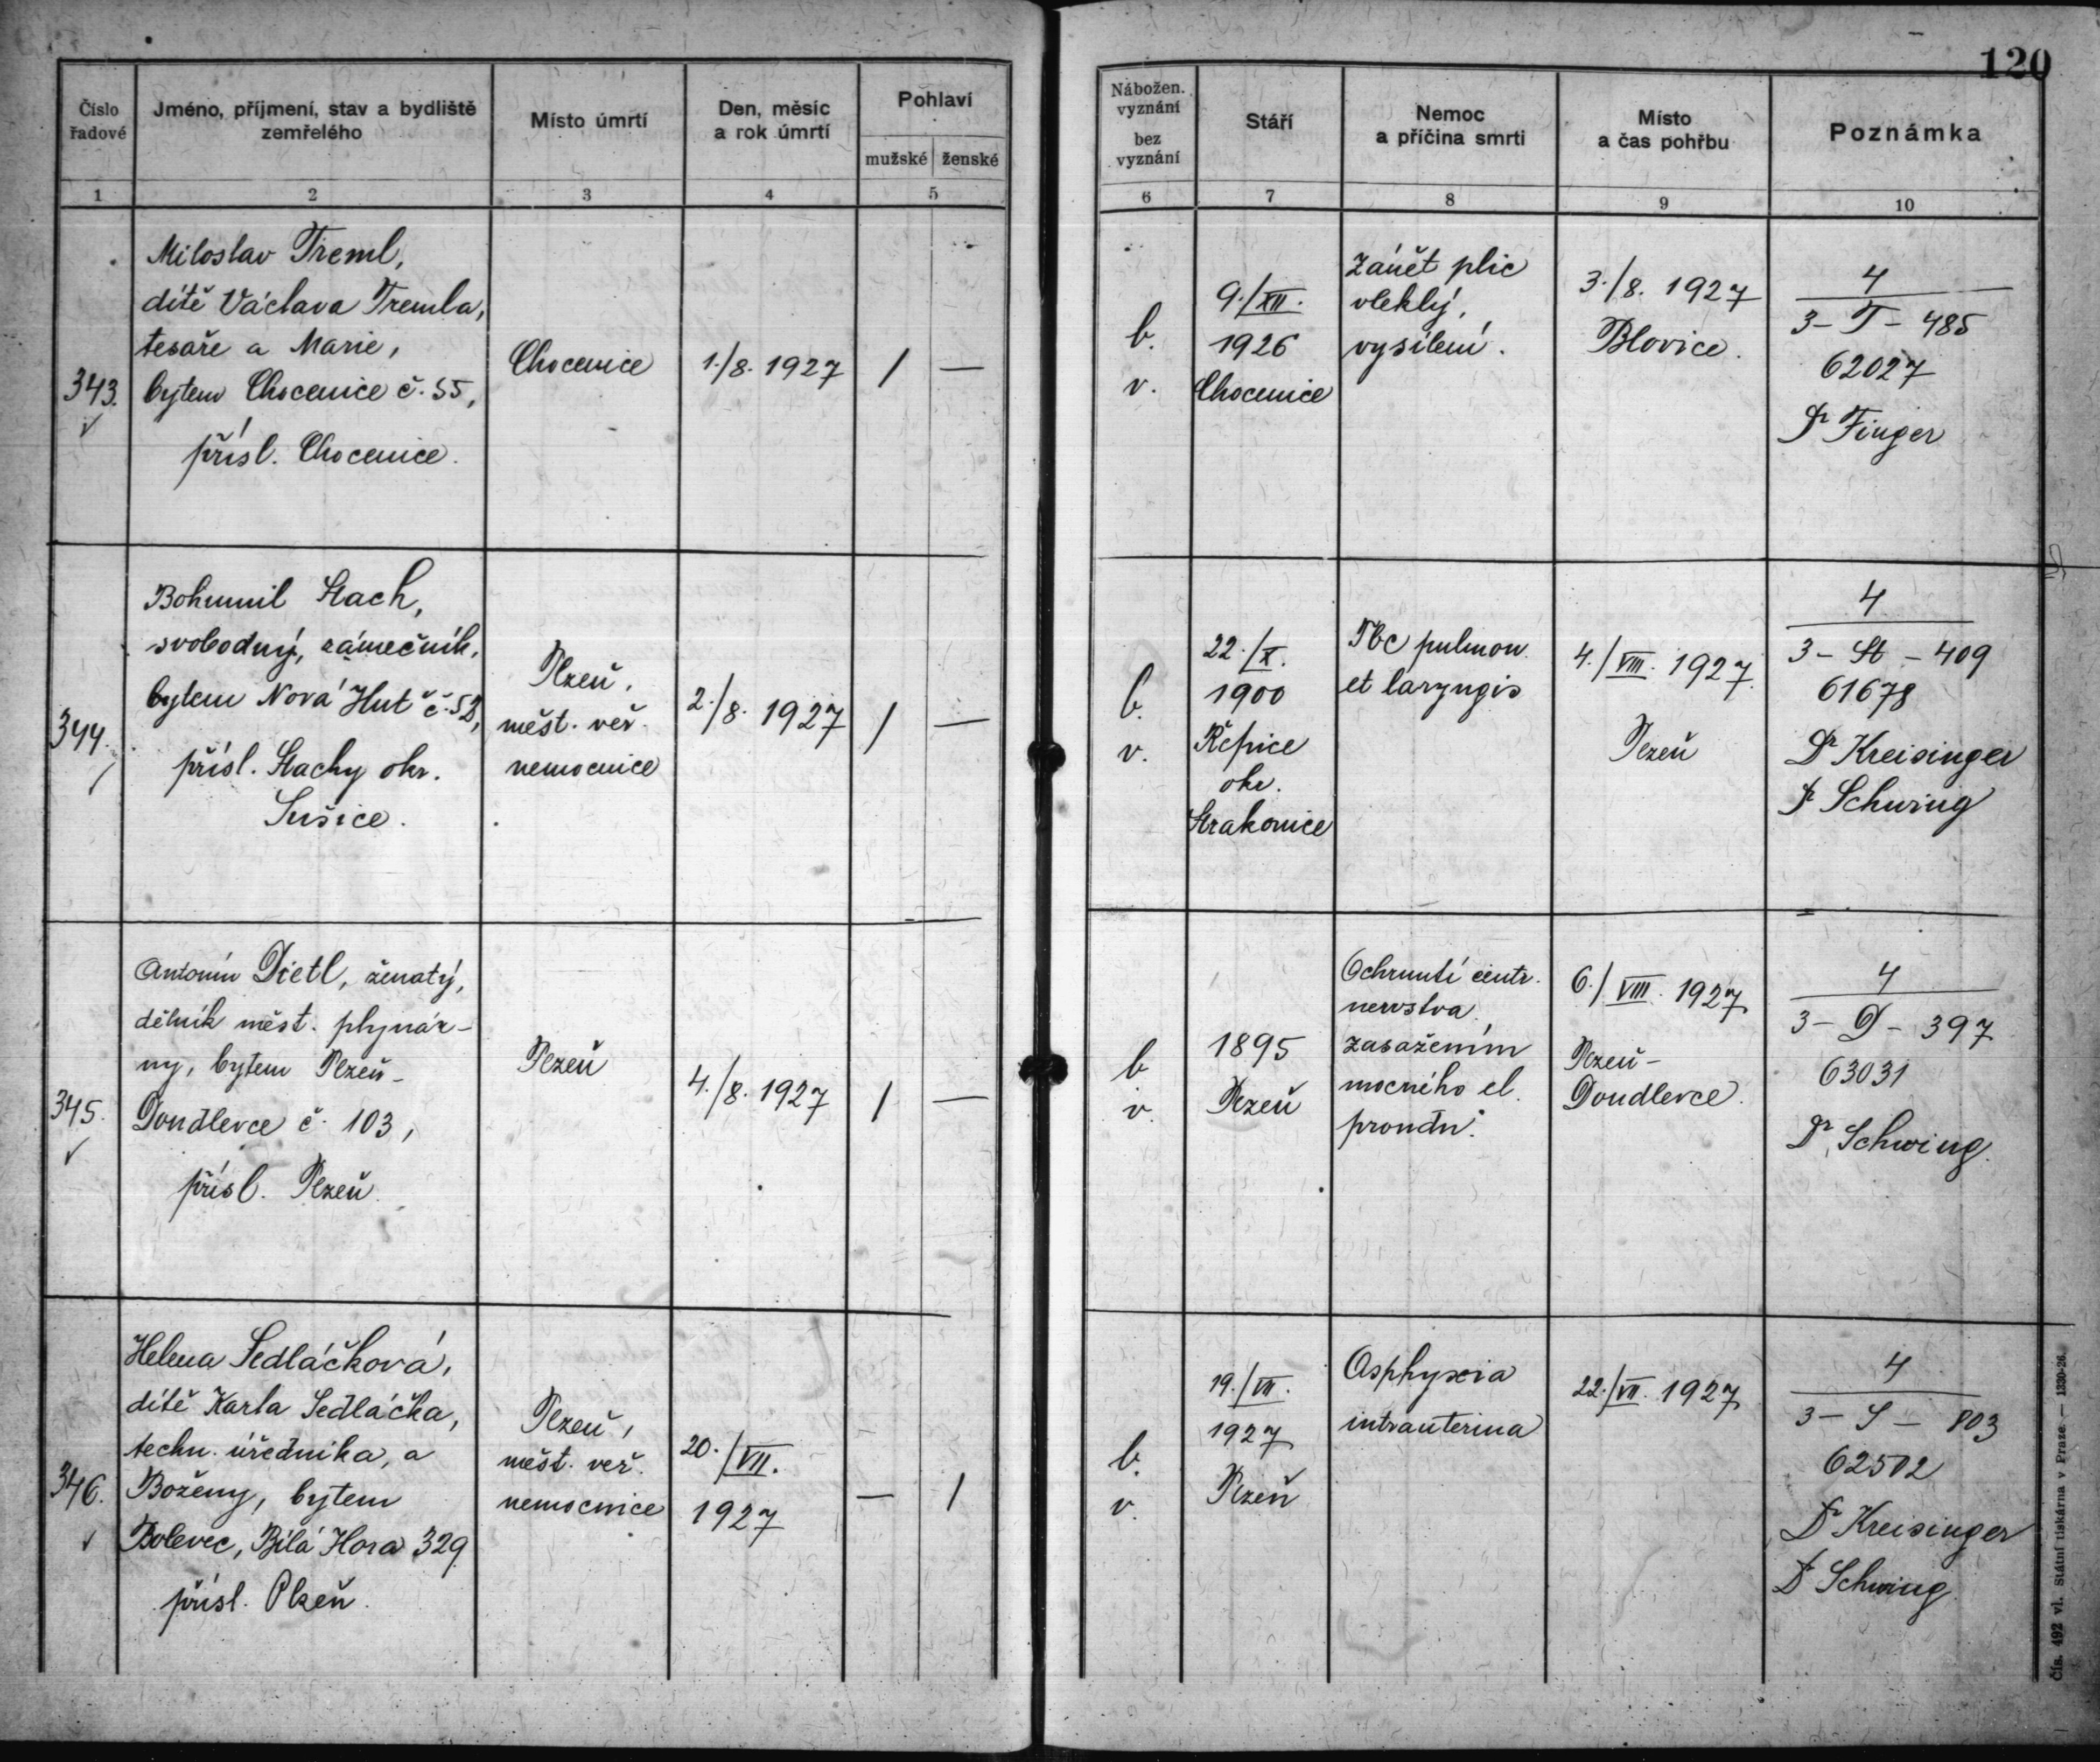 120
Číslo řadové
Jméno, příjmení, stav a bydliště zemřelého
Místo úmrtí
Den, měsíc a rok úmrtí
Pohlaví
mužské
ženské
Nábožen. vyznání
bez vyznání
Stáří
Nemoc a příčina smrti
Místo a čas pohřbu
Poznámka
1
2
3
4
5
6
7
8
9
10
343.
Miloslav Treml,
dítě Václava Tremla,
tesaře a Marie,
bytem Chocenice č. 55,
přísl. Chocenice.
Chocenice
1./8. 1927
/
—
b.
v.
9./XII.
1926
Chocenice
Zánět plic
vleklý,
vysílení.
3./8. 1927
Blovice.
4
3 - T - 485
62027
Dr Finger
344.
Bohumil Stach,
svobodný, zámečník,
bytem Nová Huť č. 52,
přísl. Stachy okr.
Sušice.
Plzeň,
měst. veř.
nemocnice
2./8. 1927
/
—
b.
v.
22./X.
1900
Řepice
okr.
Strakonice
Tbc pulmon.
et laryngis
4./VIII. 1927.
Plzeň
4
3 - St - 409
61678
Dr Kreisinger
Dr Schwing
345.
Antonín Dietl, ženatý,
dělník měst. plynár-
ny, bytem Plzeň-
Doudlevce č. 103,
přísl. Plzeň.
Plzeň
4./8. 1927
/
—
b
v.
1895
Plzeň
Ochrnutí centr.
nervstva
zasažením
mocného el.
proudu.
6./VIII. 1927
Plzeň-
Doudlevce.
4
3 - D - 397
63031
Dr Schwing.
346.
Helena Sedláčková,
dítě Karla Sedláčka,
techn. úředníka, a
Boženy, bytem
Bolevec, Bílá Hora 329
přísl. Plzeň.
Plzeň,
měst. veř.
nemocnice
20./VII.
1927
—
/
b.
v.
19./VII.
1927
Plzeň
Asphyxia
intrauterina
22./VII. 1927
4
3 - S - 803
62502
Dr Kreisinger
Dr Schwing
Čís. 492 vl. Státní tiskárna v Praze. — 1330-26.